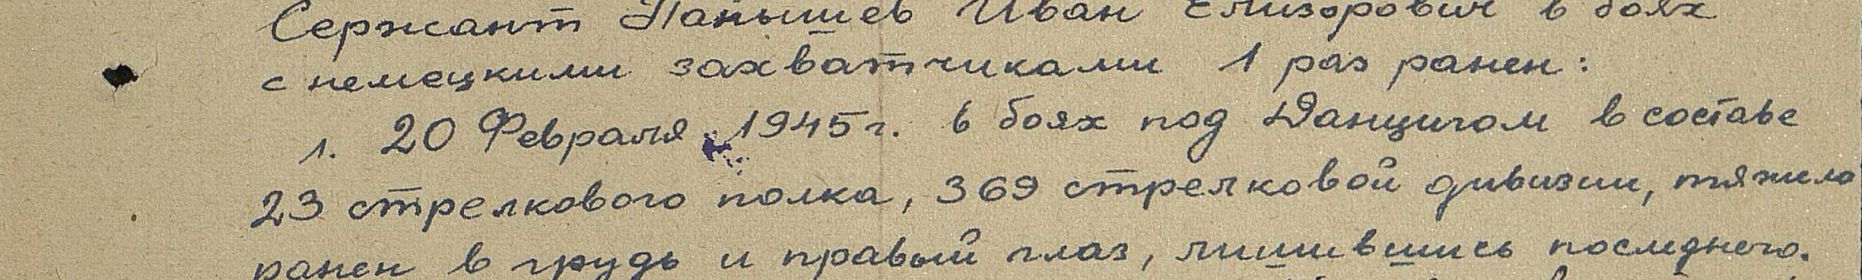 Сержант Паньшев Иван Елизарович в боях
с немецкими захватчиками 1 раз ранен:
1. 20 Февраля 1945 г. в боях под Данцигом в составе
23 стрелкового полка, 369 стрелковой дивизии, тяжело
ранен в грудь и правый глаз, лишившись последнего.